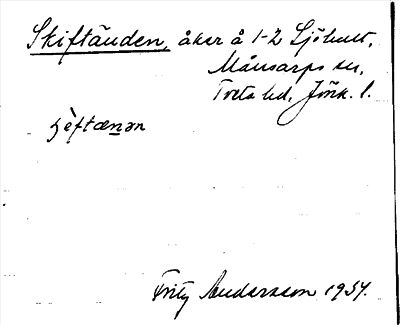 Skiftänden, åker å 1-2 Sjöhult,
Månsarps sn,
Tveta hd, Jönk. l.
ʂèftænən
Fritz Andersson 1934.